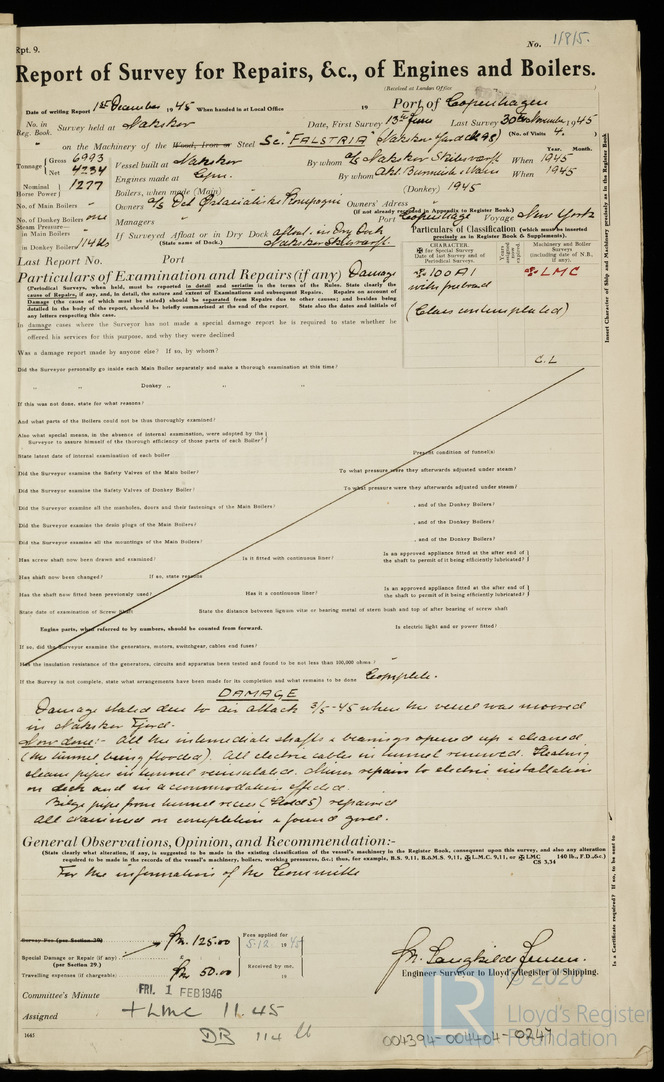 Rpt. 9.
No. 1/9/5.
Report of Survey for Repairs, &c., of Engines and Boilers.
(Received at London Office )
Date of writing Report 1st December 1945 When handed in at Local Office 19 Port of Copenhagen
No. in Reg. Book. Survey held at Nakskov Date, First Survey 13th June Last Survey 30th November 1945
(No. of Visits 4. )
on the Machinery of the Wood, Iron or Steel Sc. "FALSTRIA" (Nakskov Yard No 98)
Tonnage Gross 6993 Net 4234
Vessel built at Nakskov By whom A/S Nakskov Skibsværft When 1945
Year. Month.
Engines made at Cpn. By whom Akt. Burmeister & Wain When 1945
Nominal Horse Power 1277
Boilers, when made (Main) (Donkey) 1945
No. of Main Boilers - Owners A/S Det Østasiatiske Kompagni Owners' Address
(if not already recorded in Appendix to Register Book.)
No. of Donkey Boilers one Managers " Port Copenhagen Voyage New York
Steam Pressure—
in Main Boilers -
in Donkey Boilers 114 lbs
If Surveyed Afloat or in Dry Dock afloat & in Dry Dock
(State name of Dock.) Nakskov Skibsværft.
Particulars of Classification (which must be inserted precisely as in Register Book & Supplements).
Last Report No. Port
CHARACTER.
✠ for Special Survey
Date of last Survey and of Periodical Surveys.
Years assigned now expired.
Machinery and Boiler Surveys
(including date of N.B. if any).
✠100A1
with freeboard
(Class contemplated)
✠LMC
C.L
Particulars of Examination and Repairs (if any) Damage
(Periodical Surveys, when held, must be reported in detail and seriatim in the terms of the Rules. State clearly the
cause of Repairs, if any, and, in detail, the nature and extent of Examinations and subsequent Repairs. Repairs on account of
Damage (the cause of which must be stated) should be separated from Repairs due to other causes; and besides being
detailed in the body of the report, should be briefly summarised at the end of the report. State also the dates and initials of
any letters respecting this case.
In damage cases where the Surveyor has not made a special damage report he is required to state whether he
offered his services for this purpose, and why they were declined
Was a damage report made by anyone else? If so, by whom?
Did the Surveyor personally go inside each Main Boiler separately and make a thorough examination at this time?
" " Donkey " " "
If this was not done, state for what reasons?
And what parts of the Boilers could not be thus thoroughly examined?
Also what special means, in the absence of internal examination, were adopted by the
Surveyor to assure himself of the thorough efficiency of those parts of each Boiler?
State latest date of internal examination of each boiler Present condition of funnel(s)
Did the Surveyor examine the Safety Valves of the Main boiler? To what pressure were they afterwards adjusted under steam?
Did the Surveyor examine the Safety Valves of Donkey Boiler? To what pressure were they afterwards adjusted under steam?
Did the Surveyor examine all the manholes, doors and their fastenings of the Main Boilers? , and of the Donkey Boilers?
Did the Surveyor examine the drain plugs of the Main Boilers? , and of the Donkey Boilers?
Did the Surveyor examine all the mountings of the Main Boilers? , and of the Donkey Boilers?
Has screw shaft now been drawn and examined? Is it fitted with continuous liner? Is an approved appliance fitted at the after end of the shaft to permit of it being efficiently lubricated?
Has shaft now been changed? If so, state reasons
Has the shaft now fitted been previously used? Has it a continuous liner? Is an approved appliance fitted at the after end of the shaft to permit of it being efficiently lubricated?
State date of examination of Screw Shaft State the distance between lignum vitæ or bearing metal of stern bush and top of after bearing of screw shaft
Engine parts, when referred to by numbers, should be counted from forward. Is electric light and or power fitted?
If so, did the Surveyor examine the generators, motors, switchgear, cables and fuses?
Has the insulation resistance of the generators, circuits and apparatus been tested and found to be not less than 100,000 ohms? "
If the Survey is not complete, state what arrangements have been made for its completion and what remains to be done Complete.
DAMAGE
Damage stated due to air attack 3/5-45 when the vessel was moored
in Nakskov Fjord.
Now done:- All the intermediate shafts & bearings opened up & cleaned
(the tunnel being flooded). All electric cables in tunnel renewed. Heating
steam pipes in tunnel reinsulated. Minor repairs to electric installation
on deck and in accommodation effected.
Bilge pipe from tunnel recess (Hold 5) repaired
All examined on completion & found good.
General Observations, Opinion, and Recommendation:-
(State clearly what alteration, if any, is suggested to be made in the existing classification of the vessel's machinery in the Register Book, consequent upon this survey, and also any alteration
required to be made in the records of the vessel's machinery, boilers, working pressures, &c.; thus, for example, B.S. 9,11, B.&M.S. 9,11, ✠L.M.C. 9,11, or ✠LMC 140 lb., F.D., &c.)
CS 5,34
For the information of the Committee
Survey Fee (per Section 29)
Kr. 125.00
Fees applied for
5.12 1945
Special Damage or Repair (if any)
(per Section 29.)
Received by me.
19
Travelling expenses (if chargeable) Kr 50.00
Engineer Surveyor to Lloyd's Register of Shipping.
Committee's Minute FRI. 1 FEB 1946
Assigned + LMC 11.45
DB 114 lb
1645
Insert Character of Ship and Machinery precisely as in the Register Book
Is a Certificate required? If so, to be sent to
© 2020
LR
Lloyd's Register
Foundation
004394-004404-0247